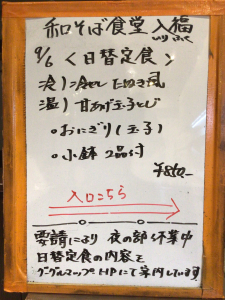 和そば食堂 入福
いりふく
9/6 〈日替定食〉
冷) 冷やし たぬき風
温) 甘あげ玉子とじ
○おにぎり(玉子)
○小鉢 2品付
入口こちら
要請により 夜の部 休業中
日替定食の内容を
グーグルマップ HPにて案内しています